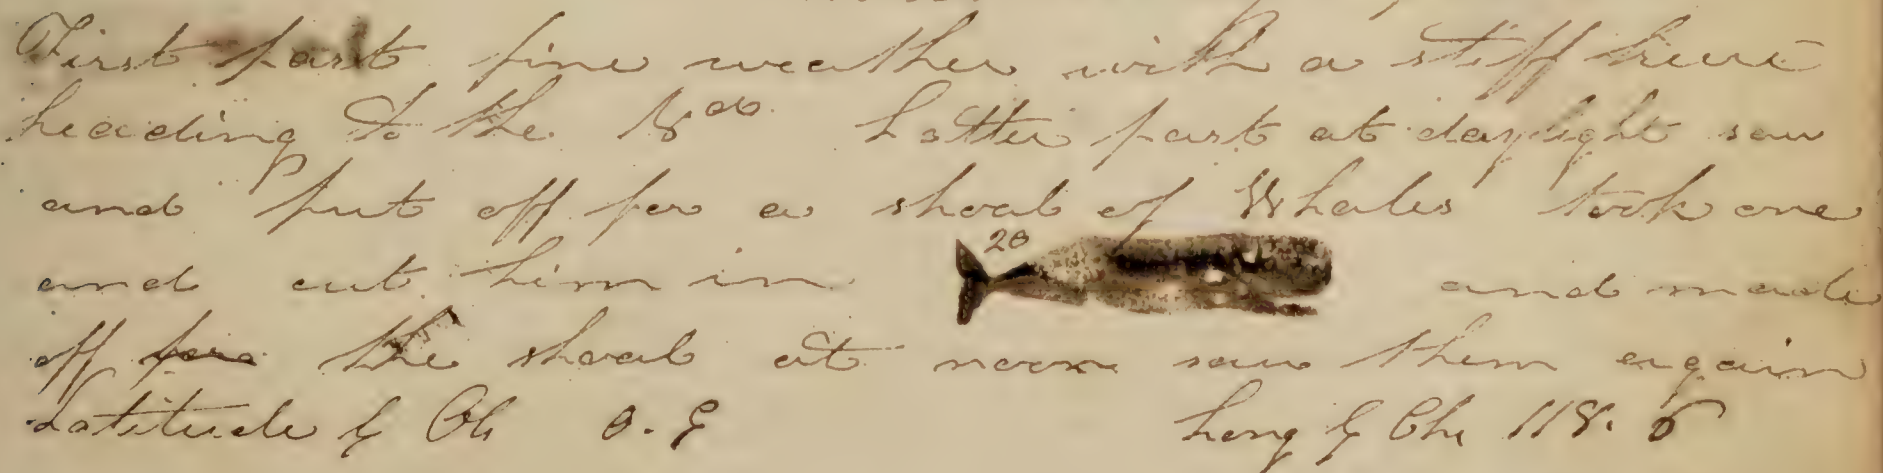 First part fine weather with a stiff breeze
heading to the Latter part at daylight saw
and put off for a shoal of Whales took one
and cut him in 20 and made
off for the shoal at noon saw them again
Latitude by Ob 0. Long by Chr 118.